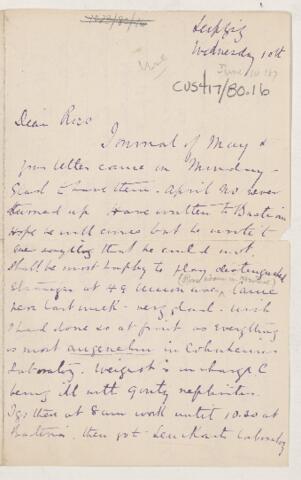 Leipzig
Wednesday 10th
June 10
CUS417/80.16
Dear Ross
Journal of May &
your letter came on Monday -
Glad to have them. April No never
turned up. Have written to Bastian
Hope he will come but he wrote
me saying that he could not
Shall be most happy to play distinguished
stranger at 49 Union Ave. came
here last week - very glad - wish
I had done so at first as everything
is most angenehm in Cohnheim's
Laboratory. Weigert is in charge C
being ill with Gouty nephritis.
I go then at 8 am work until 10.30 at
Bacteria, then go to Leuckart's Laboratory